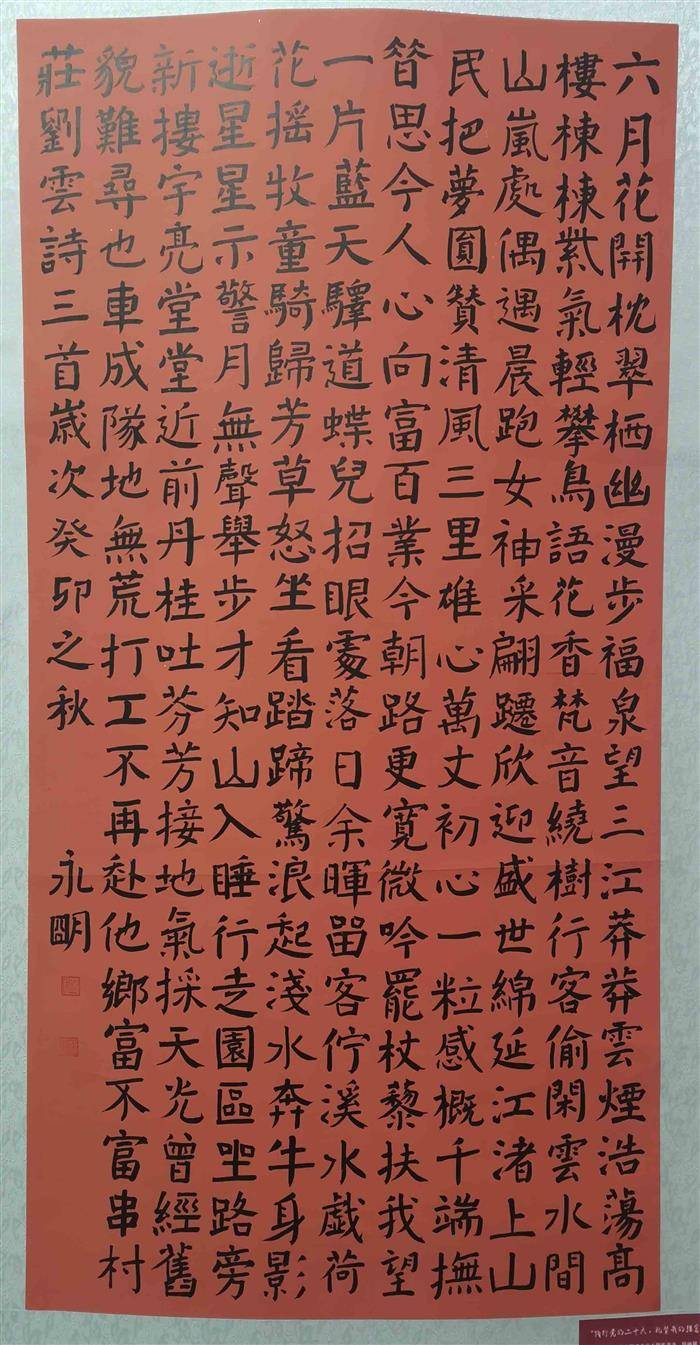 六月花開枕翠栖幽漫步福泉望三江莽莽雲煙浩蕩高
樓棟棟紫氣輕攀鳥語花香梵音繞樹行客偷閑雲水間
山嵐處偶遇晨跑女神采翩躚欣迎盛世綿延江渚上山
民把夢圓贊清風三里雄心萬丈初心一粒感概千端撫
昔思今人心向富百業今朝路更寬微吟罷杖藜扶我望
一片藍天驛道蝶兒招眼處落日余暉留客佇溪水戲荷
花搖牧童騎歸芳草怒坐看踏蹄驚浪起淺水奔牛身影
逝星星示警月無聲舉步才知山入睡行走園區坐路旁
新摟宇亮堂堂近前丹桂吐芬芳接地氣採天光曾經舊
貌難尋也車成隊地無荒打工不再赴他鄉富不富串村
莊劉雲詩三首歲次癸卯之秋
永明